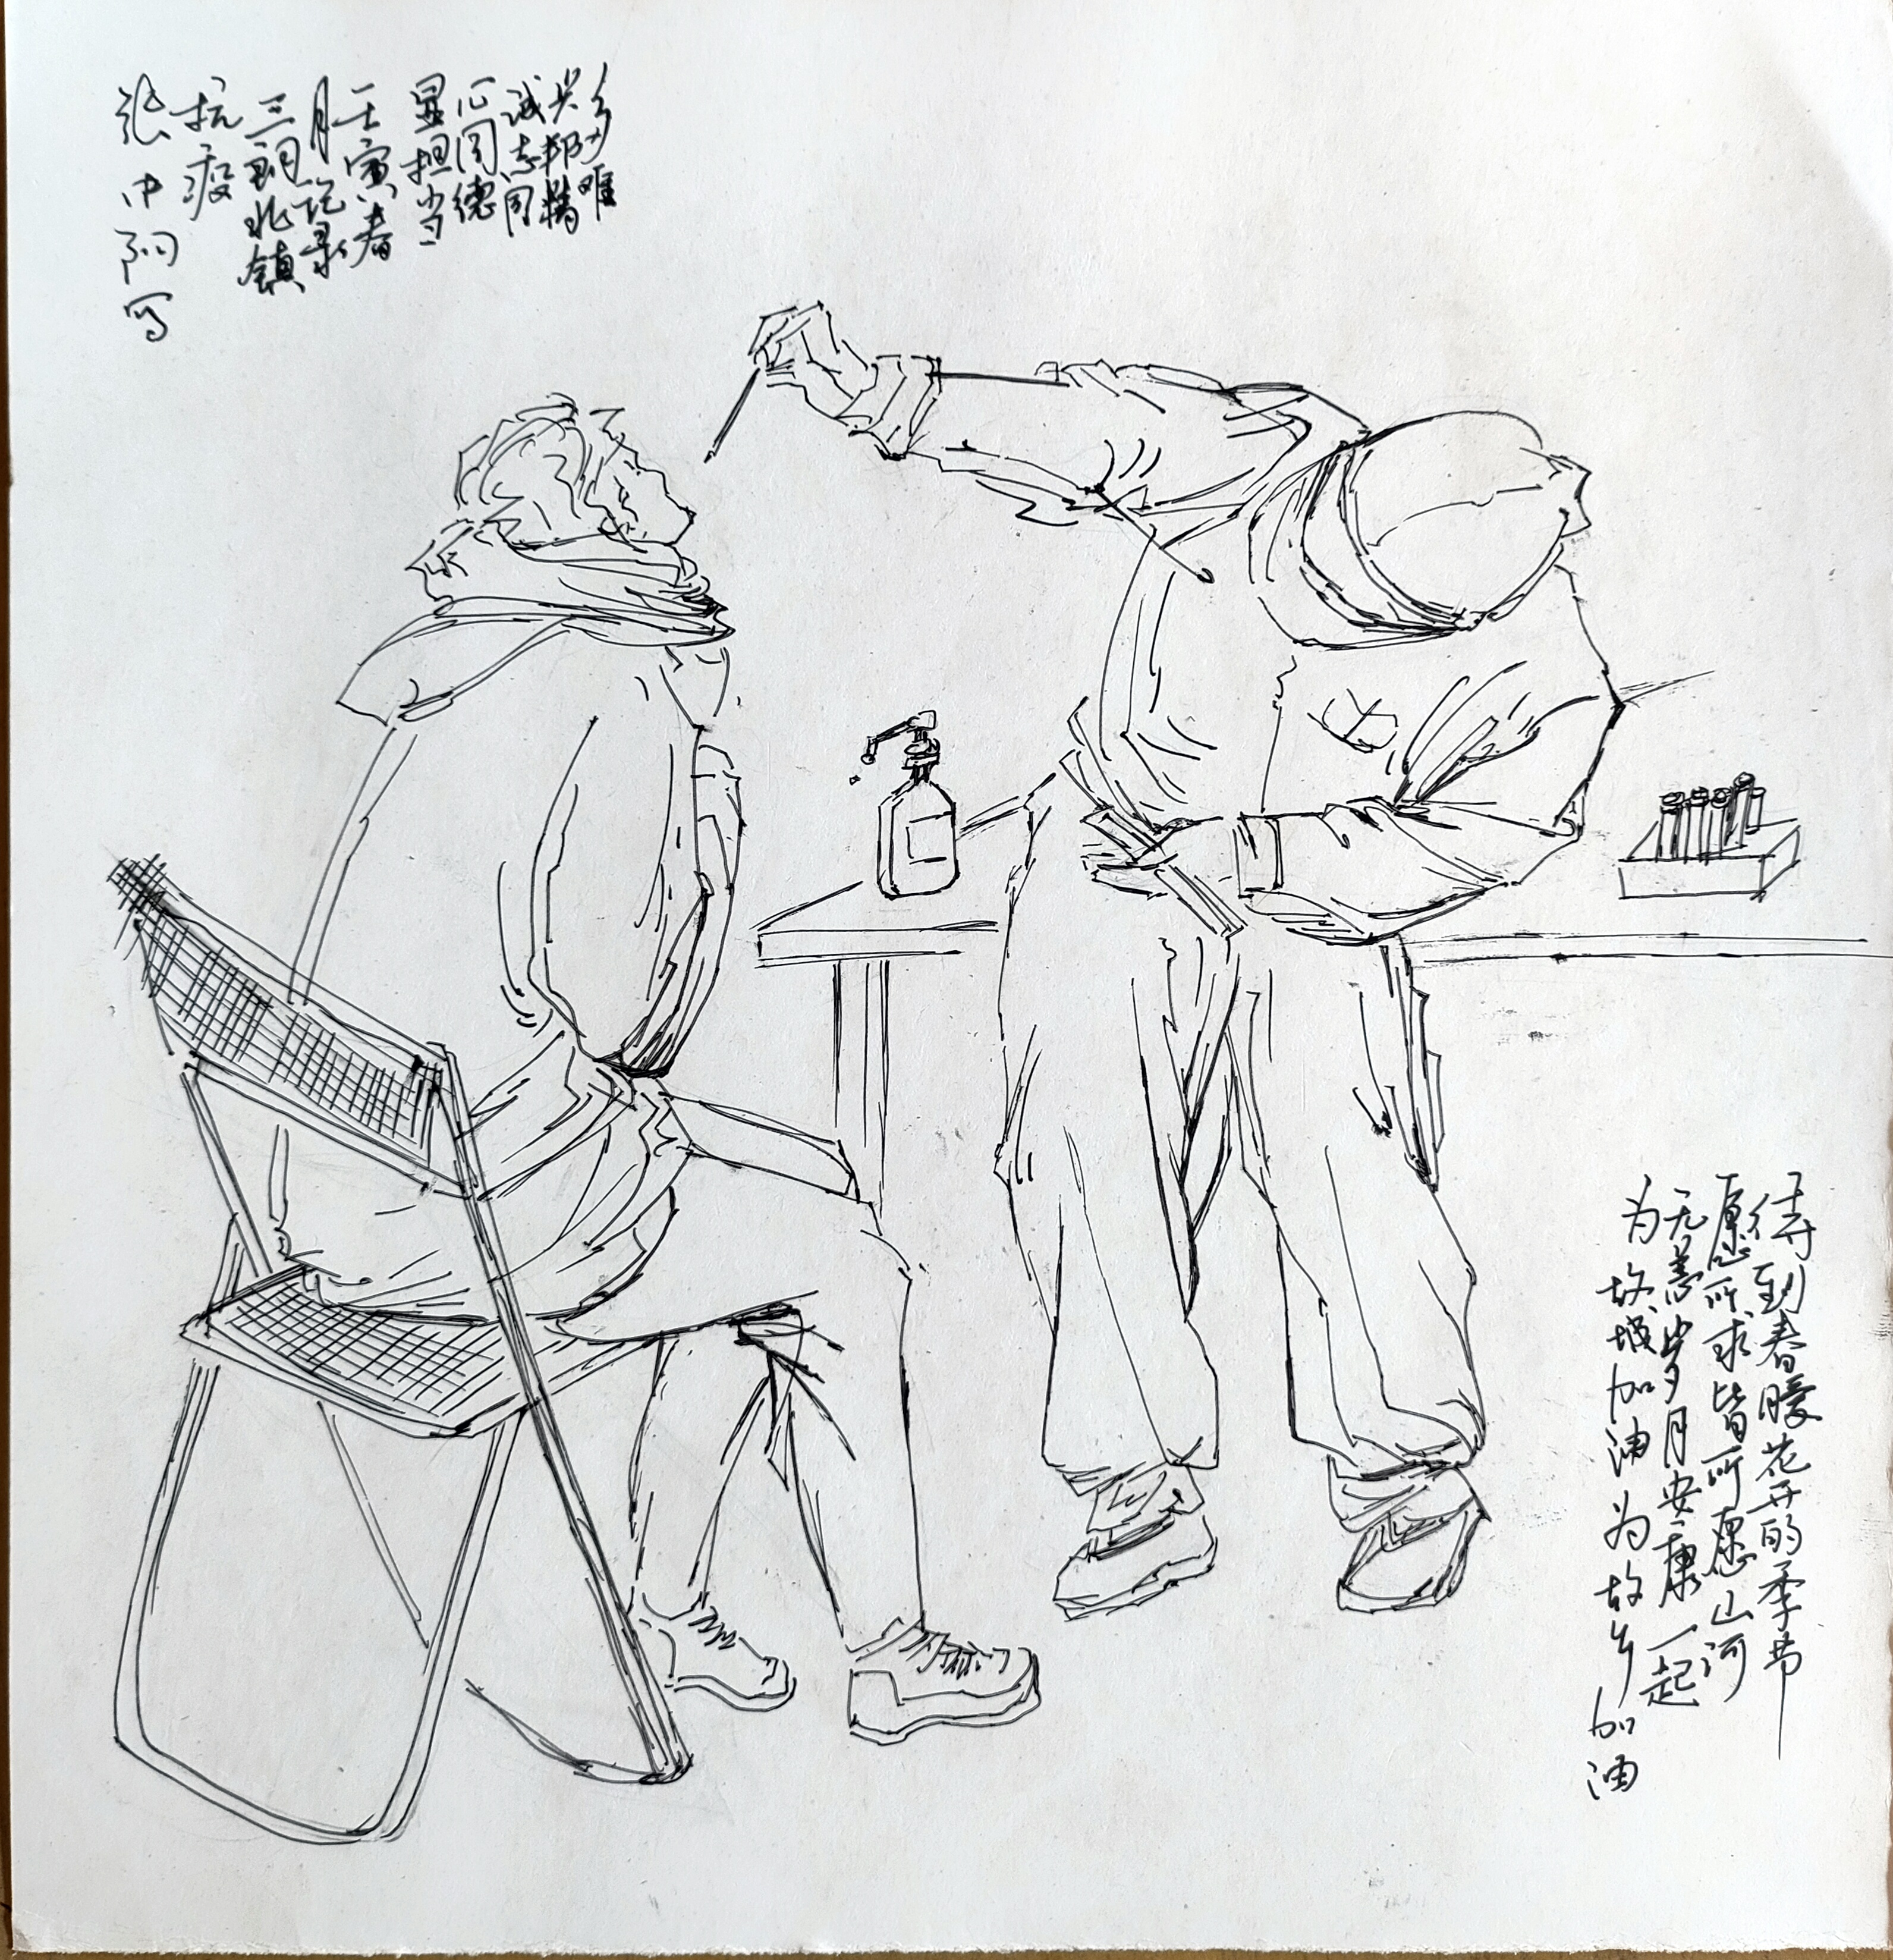 多难
兴邦精
诚志同
心同德
显担当
壬寅春
月记录
三北镇
抗疫
张中写
待到春暖花开的季节
愿所求皆所愿山河
无恙岁月安康一起
为故城加油为故乡加油